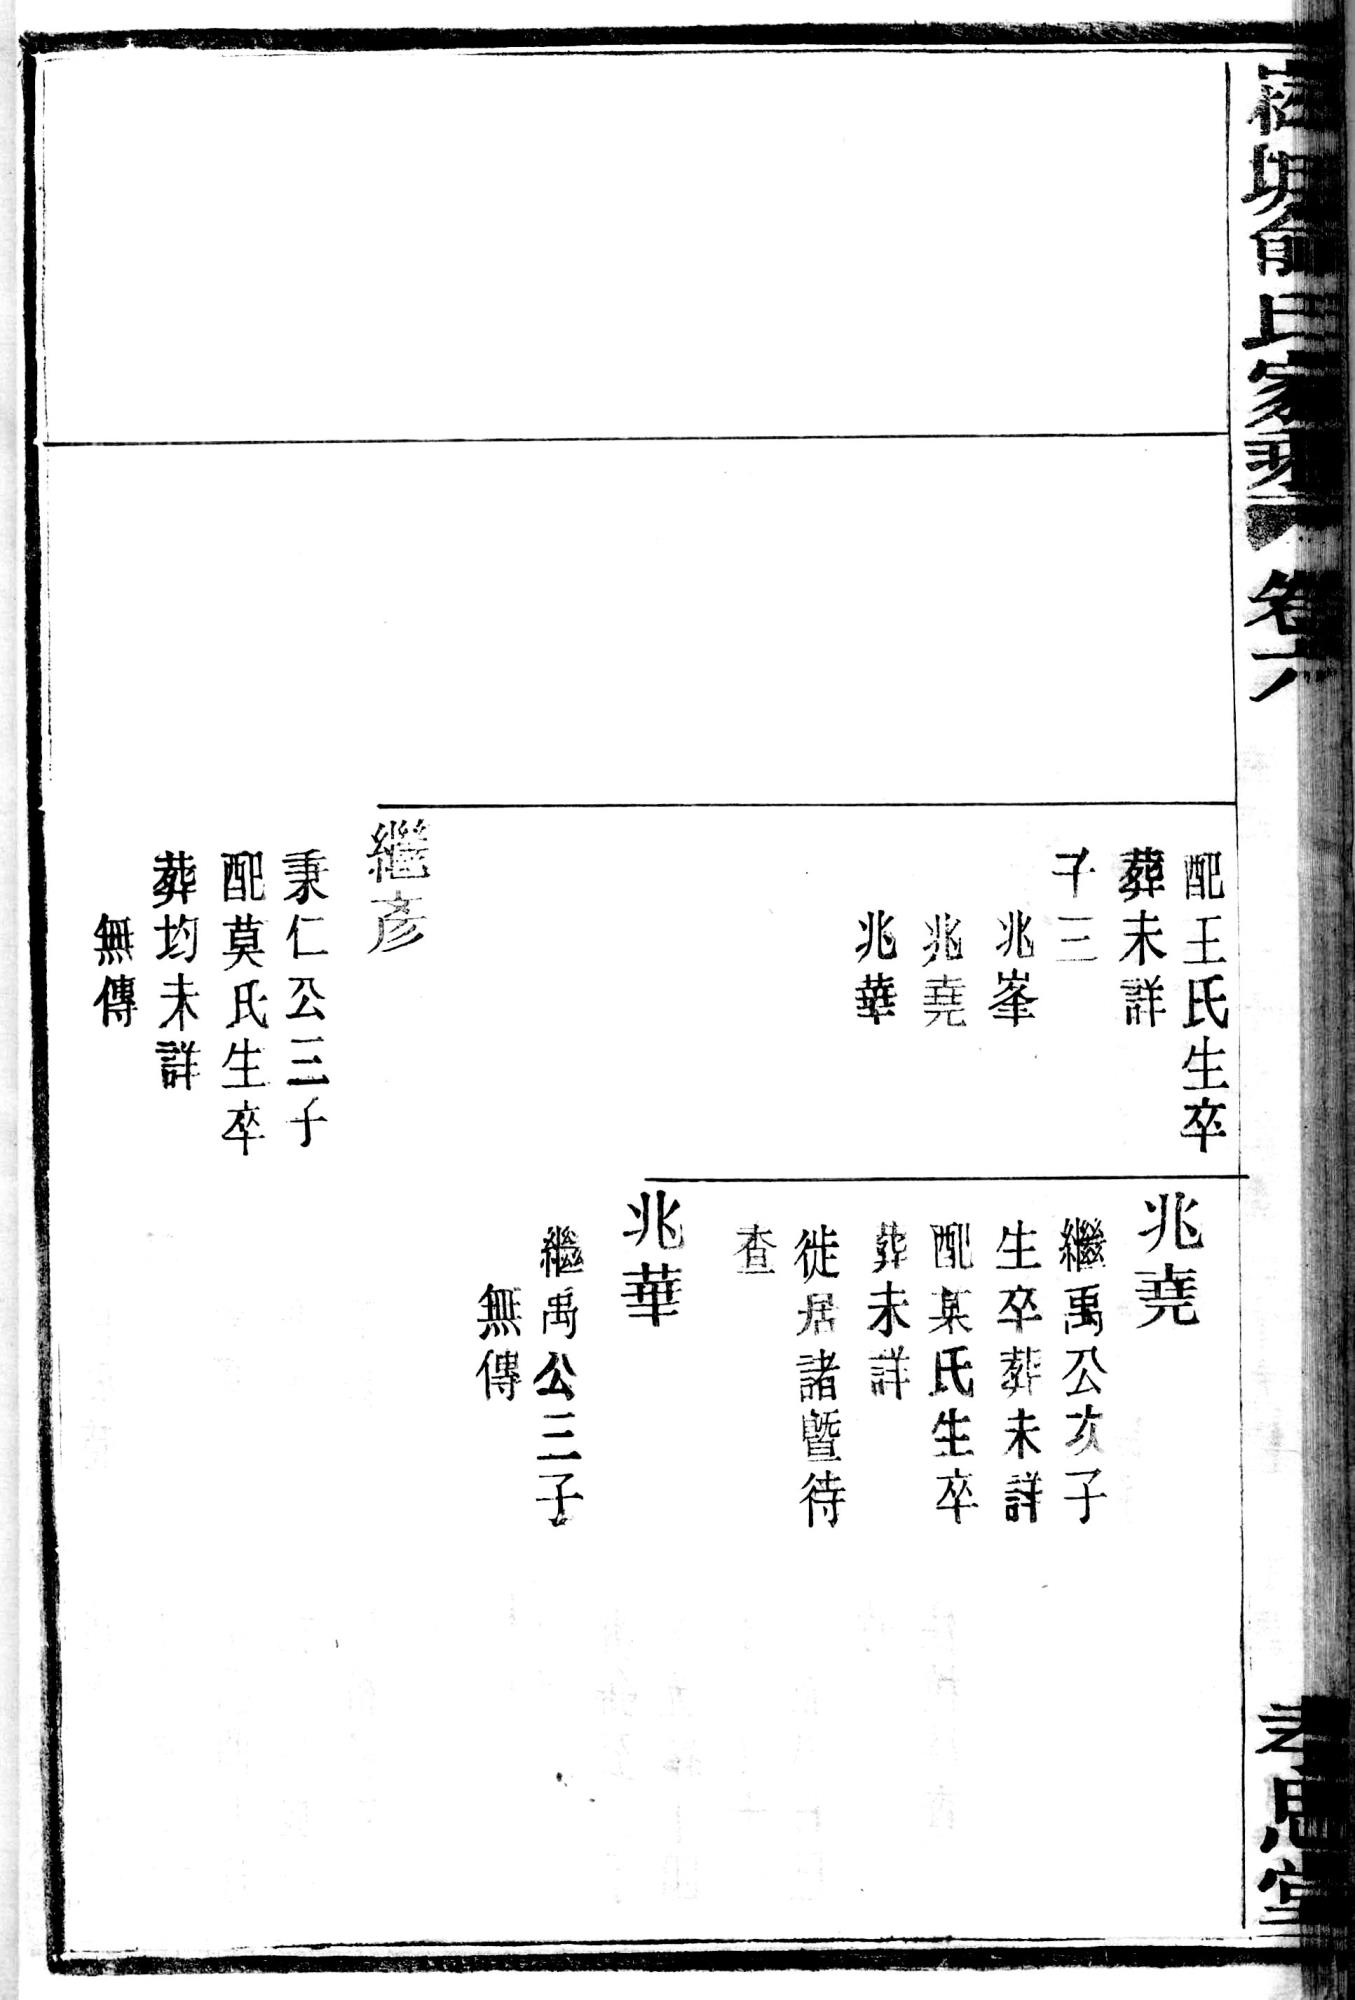 氏家
卷六
孝思堂
配王氏生卒
葬未詳
子三
兆峯
兆堯
兆華
繼彥
秉仁公三子
配莫氏生卒
葬均未詳
無傳
兆堯
繼禹公次子
生卒葬未詳
配某氏生卒
葬未詳
徙居諸暨待
查
兆華
繼禹公三子
無傳